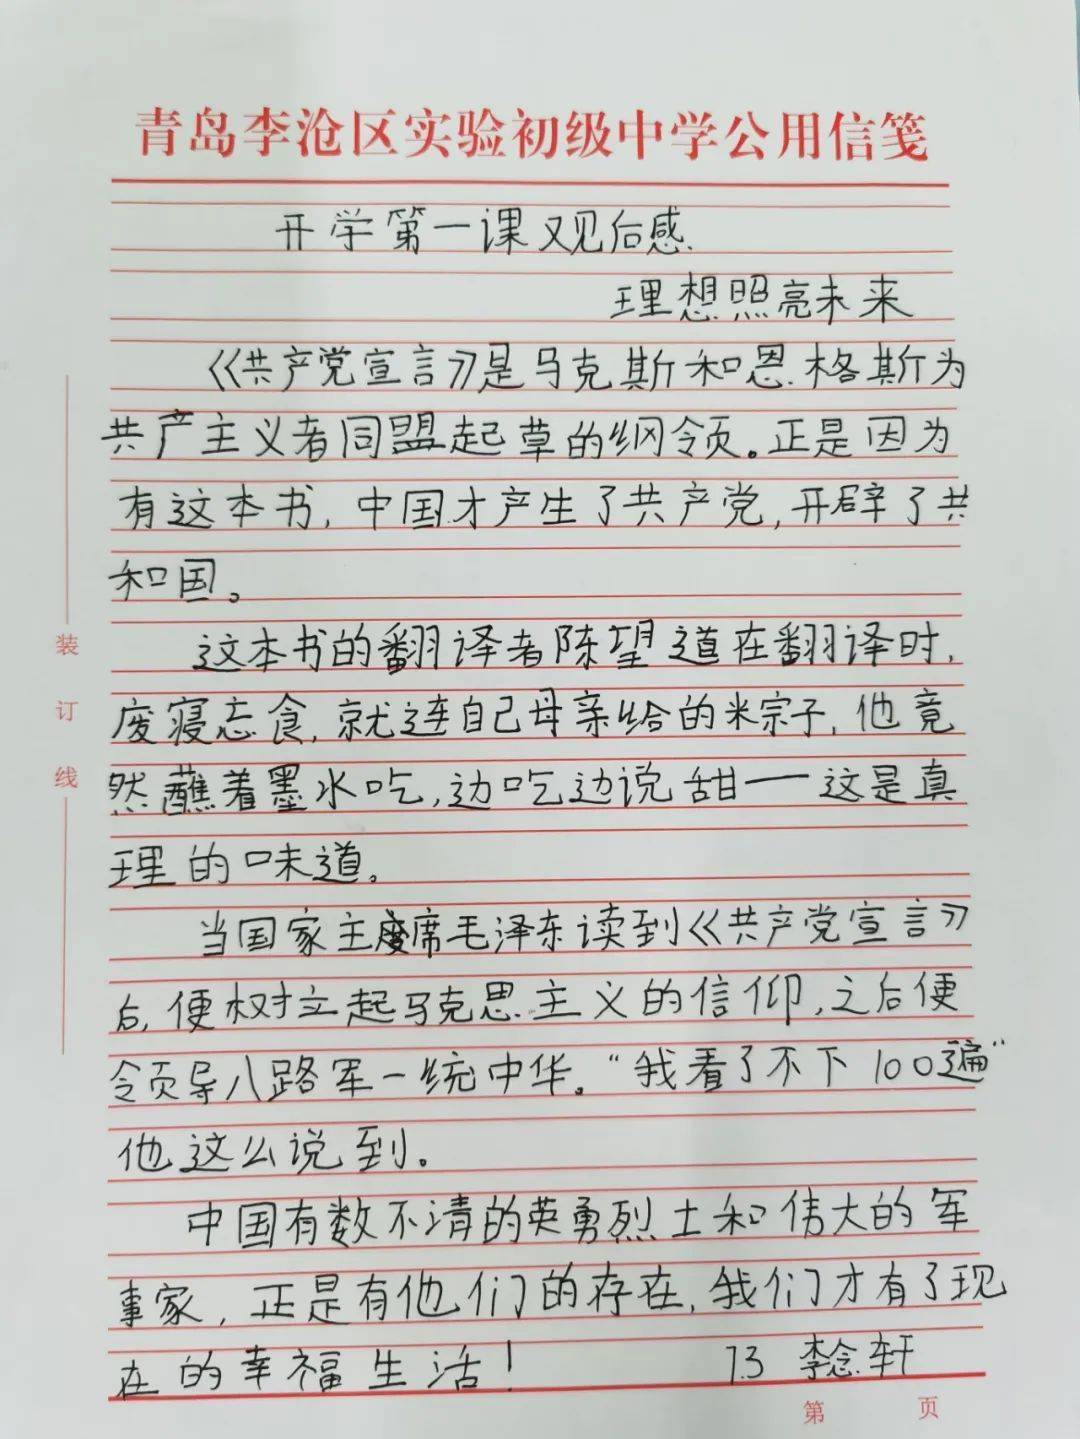 青岛李沧区实验初级中学公用信笺
开学第一课观后感
理想照亮未来
《共产党宣言》是马克斯和恩格斯为
共产主义者同盟起草的纲领。正是因为
有这本书，中国才产生了共产党，开辟了共
和国。
这本书的翻译者陈望道在翻译时，
废寝忘食，就连自己母亲给的米宗子，他竟
然蘸着墨水吃，边吃边说甜——这是真
理的味道。
当国家主席毛泽东读到《共产党宣言》
后，便树立起马克思主义的信仰，之后便
领导八路军一统中华。“我看了不下100遍”
他这么说到。
中国有数不清的英勇烈士和伟大的军
事家，正是有他们的存在，我们才有了现
在的幸福生活！ 7.3 李念轩
装
订
线
第 页